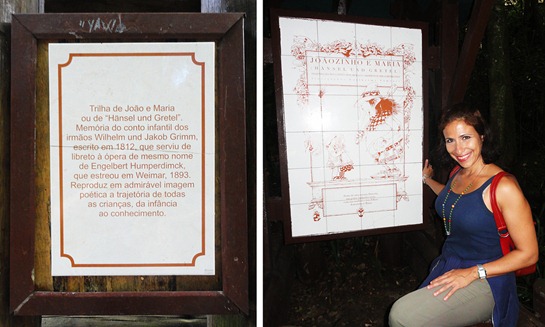 "YAW"
Trilha de João e Maria
ou de "Hänsel und Gretel".
Memória do conto infantil dos
irmãos Wilhelm und Jakob Grimm,
escrito em 1812, que serviu de
libreto à ópera de mesmo nome
de Engelbert Humperdimck,
que estreou em Weimar, 1893.
Reproduz em admirável imagem
poética a trajetória de todas
as crianças, da infância
ao conhecimento.
JOÃOZINHO E MARIA
HÄNSEL UND GRETEL